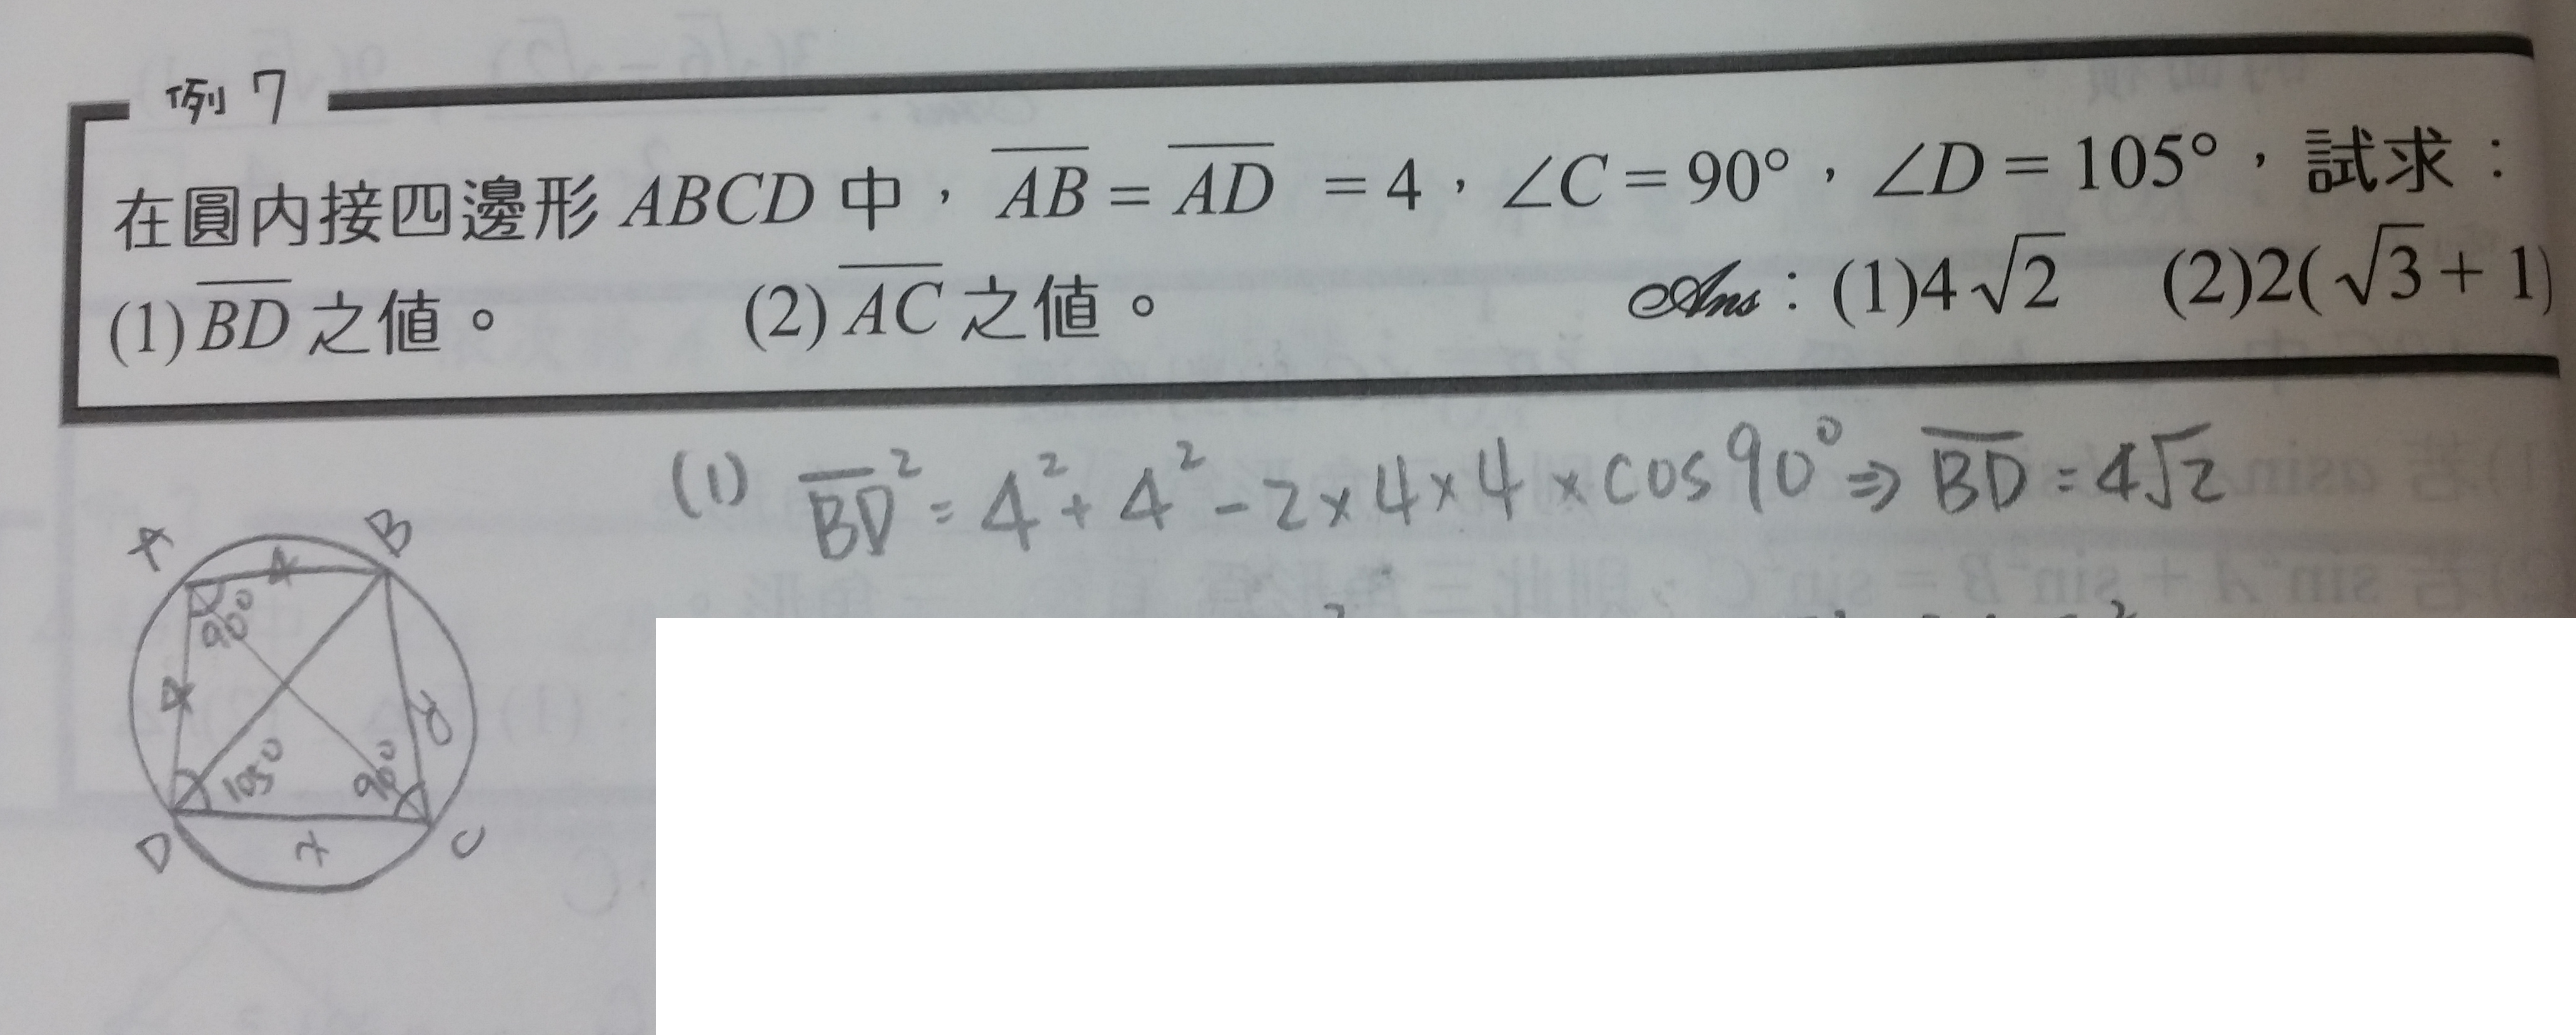 例 7
在圓內接四邊形 ABCD 中，\overline{AB} = \overline{AD} = 4，∠C = 90°，∠D = 105°，試求：
(1) \overline{BD} 之值。 (2) \overline{AC} 之值。 Ans：(1)4√2 (2)2(√3+1)
(1) \overline{BD}² = 4² + 4² - 2×4×4×cos90° ⇒ \overline{BD} = 4√2
A B
4
90°
4
105° 90°
D C